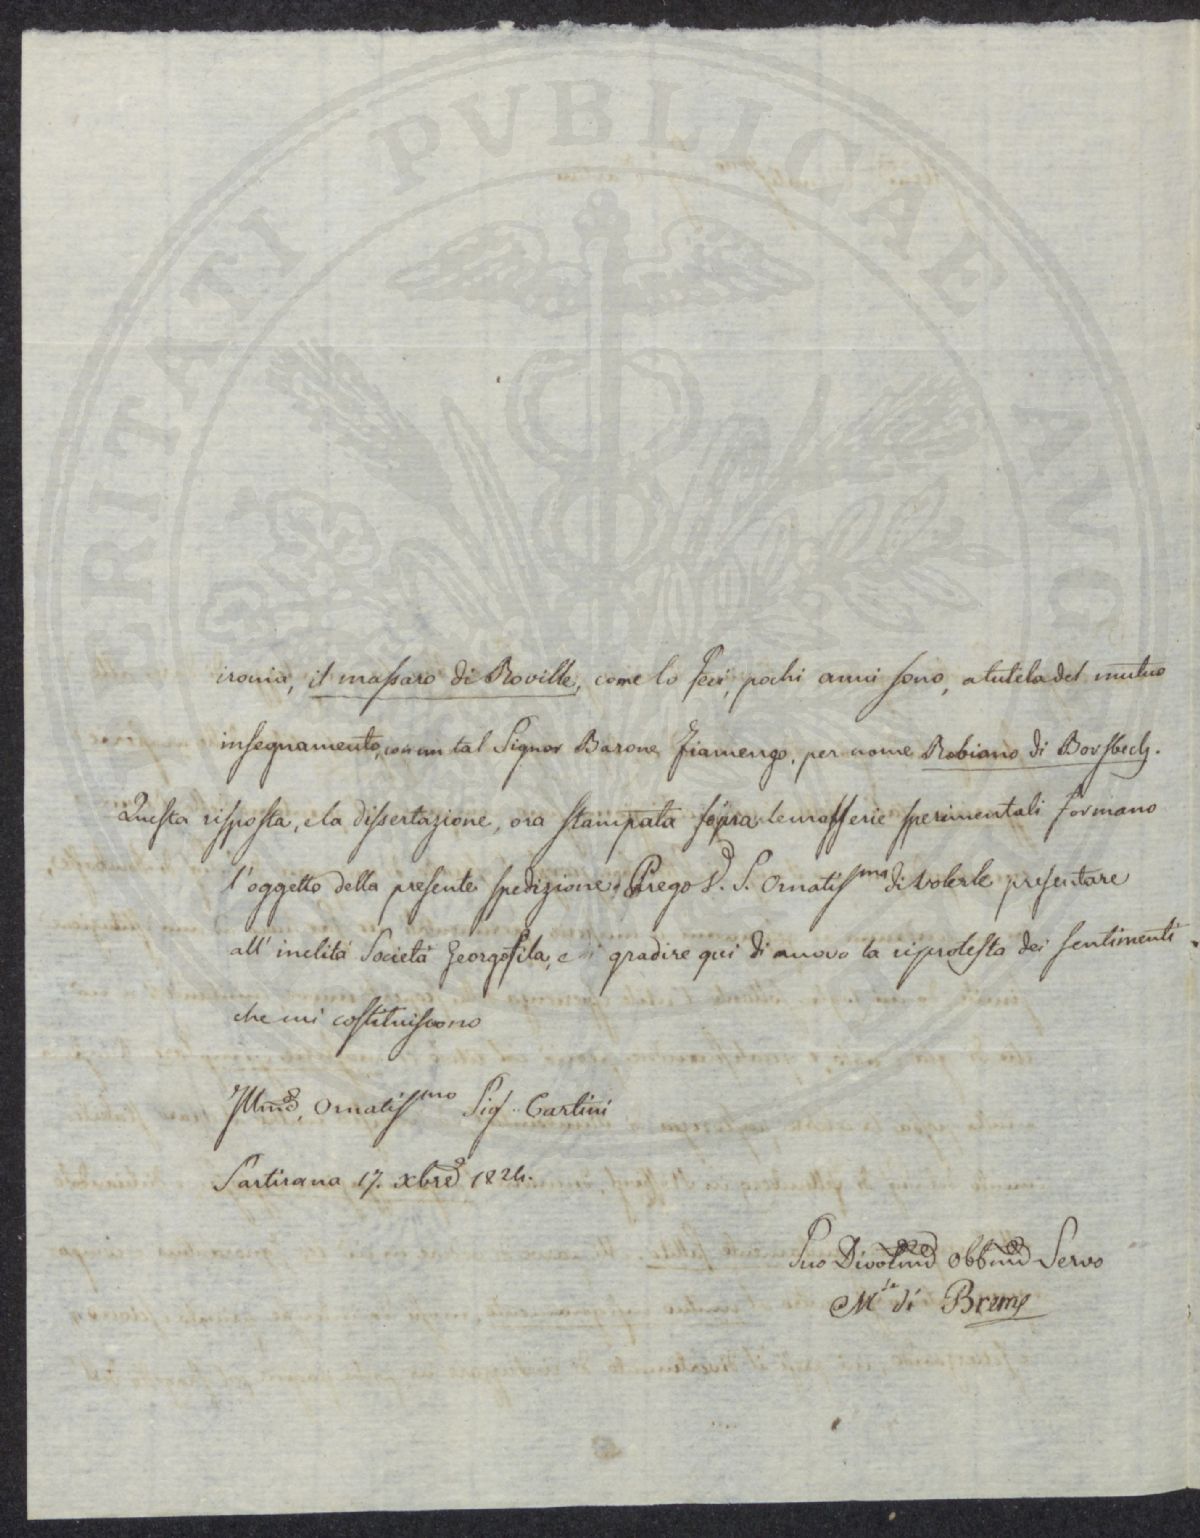 PVBLICAE
ironia, il massaro di Roville, come lo feci, pochi anni sono, a tutela del mutuo
insegnamento, con un tal Signor Barone Fiamengo, per nome Robiano di Borsbech.
Questa risposta, e la dissertazione, ora stampata sopra le masserie sperimentali formano
l'oggetto della presente spedizione. Prego V. S. Ornatissma di volerle presentare
all' inclita Società Georgofila, e di gradire qui di nuovo la riprotesta dei sentimenti
che mi costituiscono
Illmo, Ornatissmo Sigr Tartini
Sartirana 17. xbre 1824.
Suo Divotmo Obbmo Servo
M. di Breme